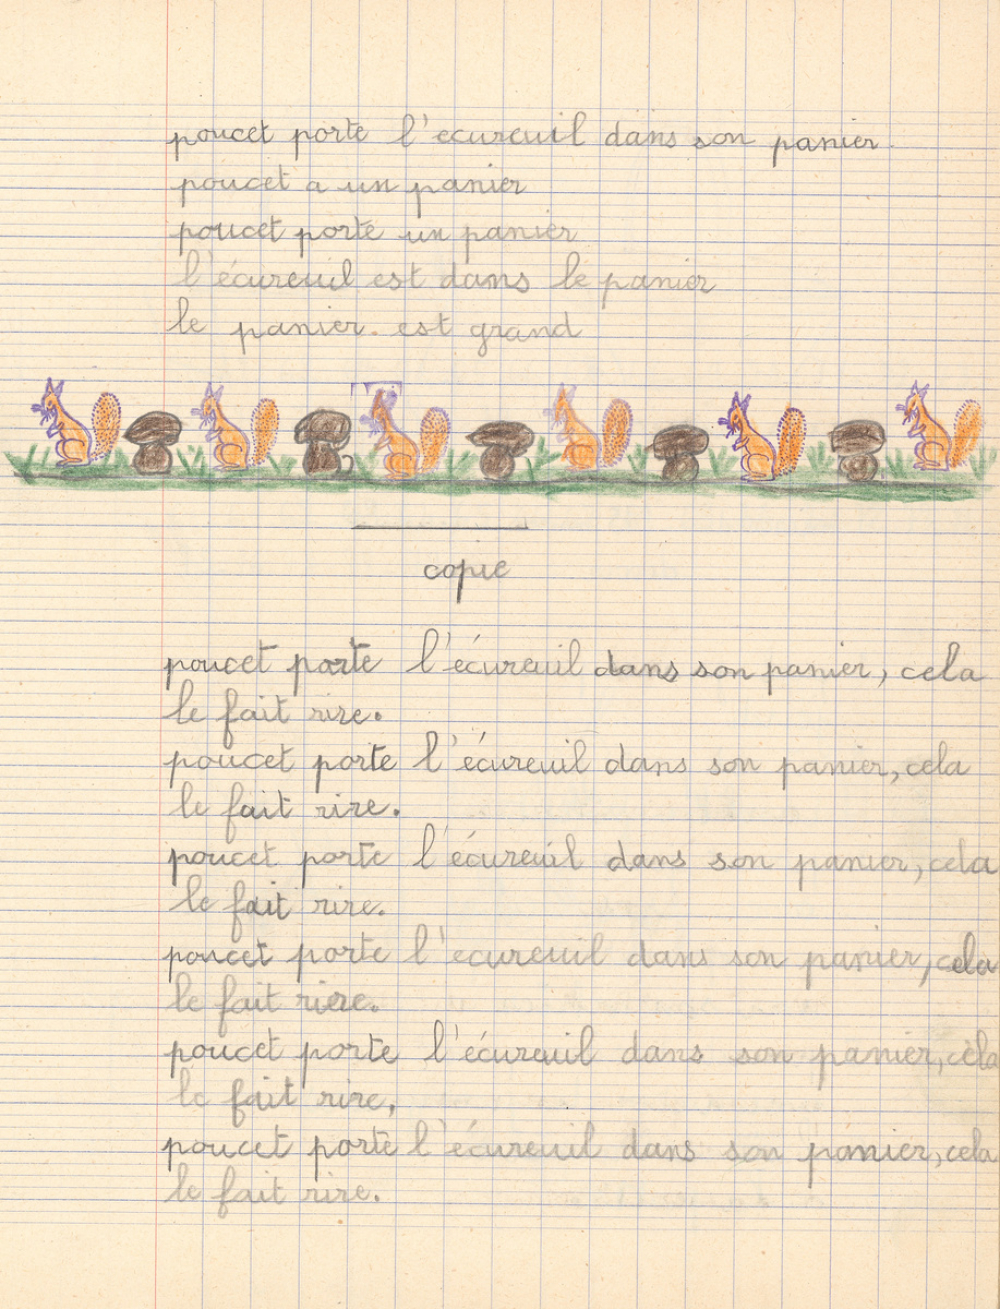 poucet porte l'ecureuil dans son panier.
poucet a un panier
poucet porte un panier
l'écureuil est dans le panier
le panier. est grand
copie
poucet porte l'écureuil dans son panier, cela
le fait rire.
poucet porte l'écureuil dans son panier, cela
le fait rire.
poucet porte l'écureuil dans son panier, cela
le fait rire.
poucet porte l'ecureuil dans son panier, cela
le fait riere.
poucet porte l'écureuil dans son panier, cela
le fait rire,
poucet porte l'écureuil dans son panier, cela
le fait rire.